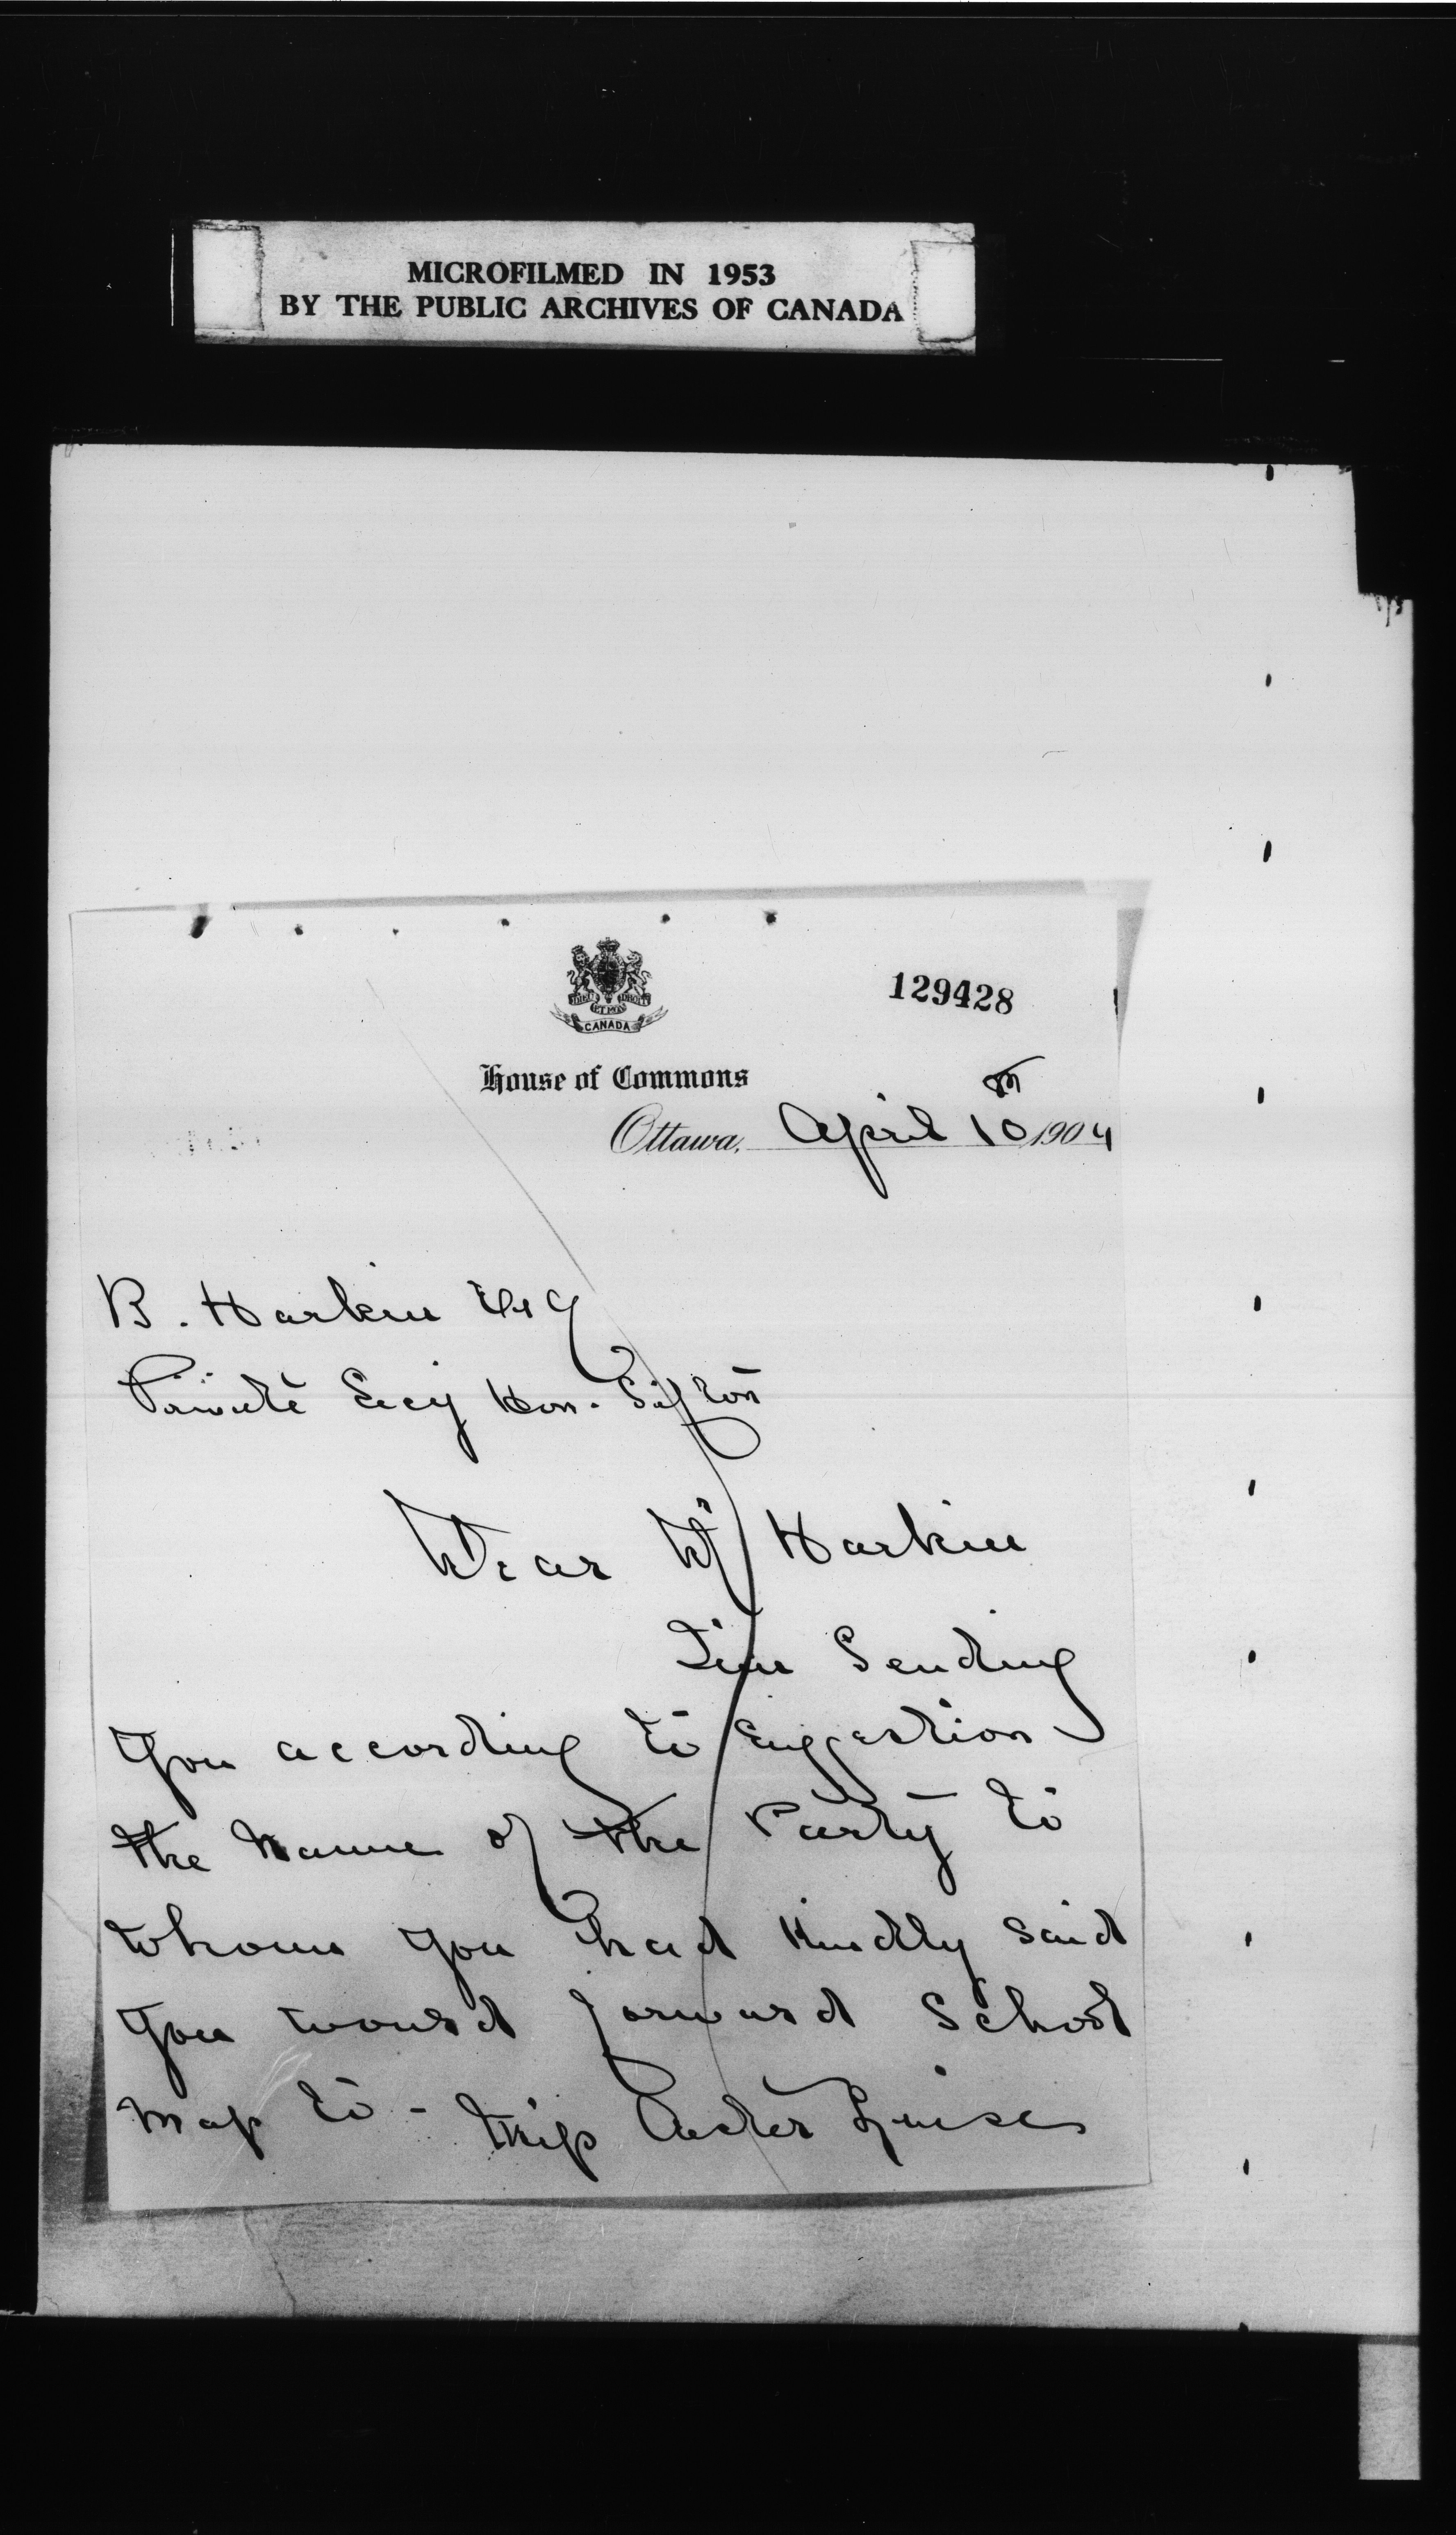 MICROFILMED IN 1953
BY THE PUBLIC ARCHIVES OF CANADA
DIEU ET MON DROIT
CANADA
129428
House of Commons
Ottawa, April 10th 1904
B. Harkin Esq
Private Secy Hon. Sifton
Dear Mr Harkin
I'm Sending
you according to suggestion
the name of the Party to
whom you had kindly said
you would forward School
map to - Miss